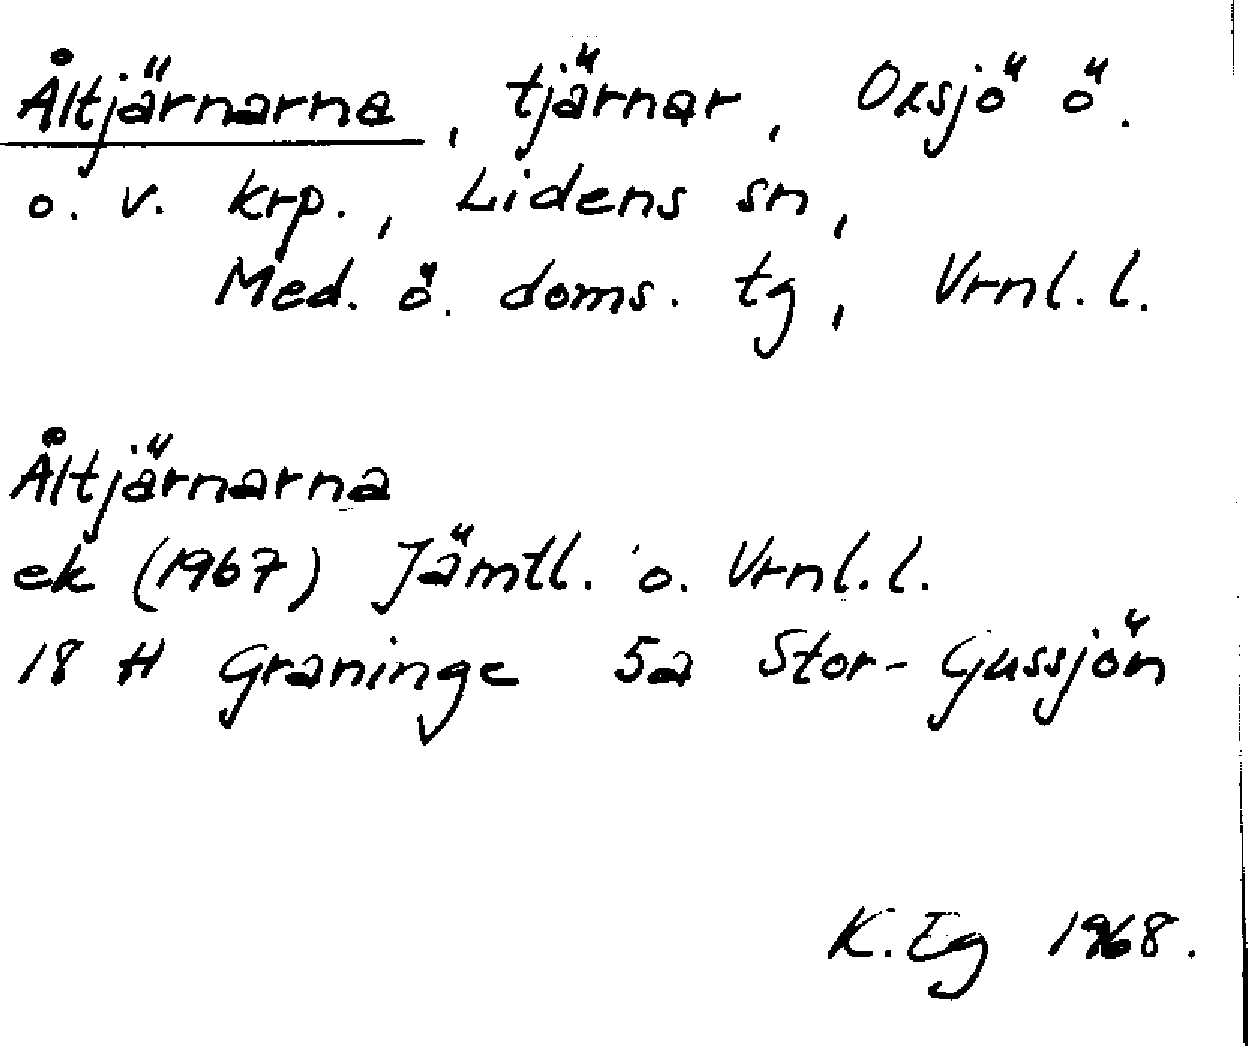 Åltjärnarna, tjärnar, Oxsjö ö.
o. v. krp., Lidens sn,
Med. ö. doms. tg, Vrnl. l.
Åltjärnarna
ek (1967) Jämtl. o. Vrnl. l.
18 H Graninge 5a Stor-Gussjön
K. Eg 1968.